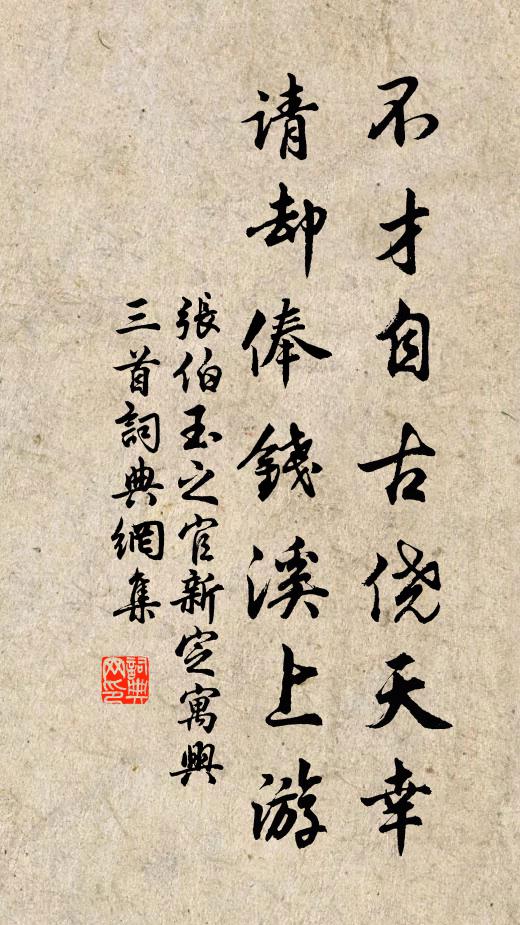 不才自古侥天幸
请却俸錢溪上游
張伯玉之官新定寓興
三首詞典網集
詞典网印